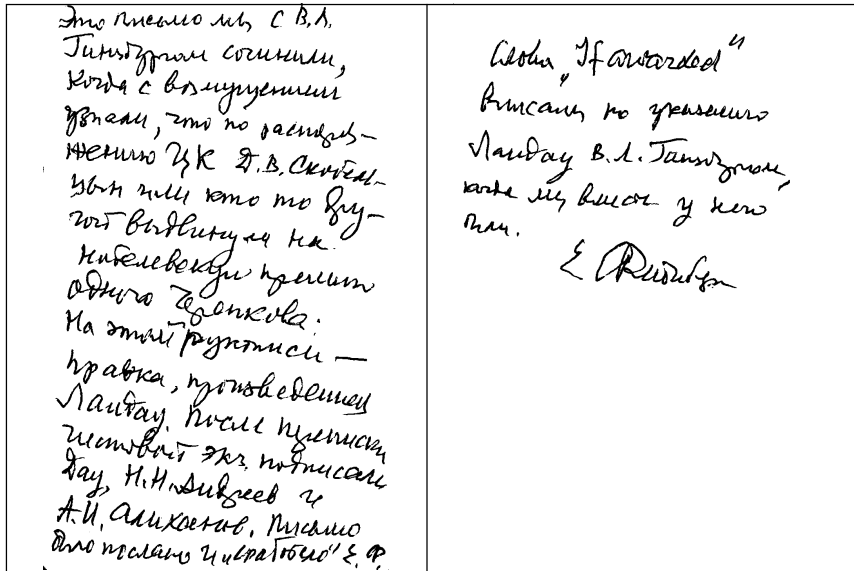 Это письмо мы с В.Л.
Гинзбургом сочинили,
когда с возмущением
узнали, что по распоря-
жению ЦК Д.В. Скобель-
цын или кто то дру-
гой выдвинули на
нобелевскую премию
одного Черенкова.
На этой рукописи —
правка, произведенная
Ландау. После переписки
чистовой экз. подписали
Дау, Н.Н. Андреев и
А.И. Алиханов. Письмо
было послано и „сработало" Е.Ф.
Слова „If awarded"
вписаны по указанию
Ландау В.Л. Гинзбургом,
когда мы вместе у него
были.
Е